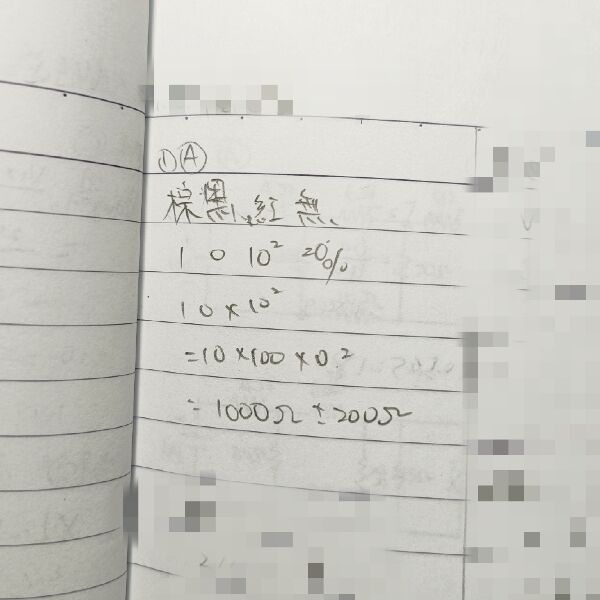 ① Ⓐ
棕 黑 紅 無
1 0 10² 20%
10×10²
=10×100×0²
= 1000Ω ± 200Ω